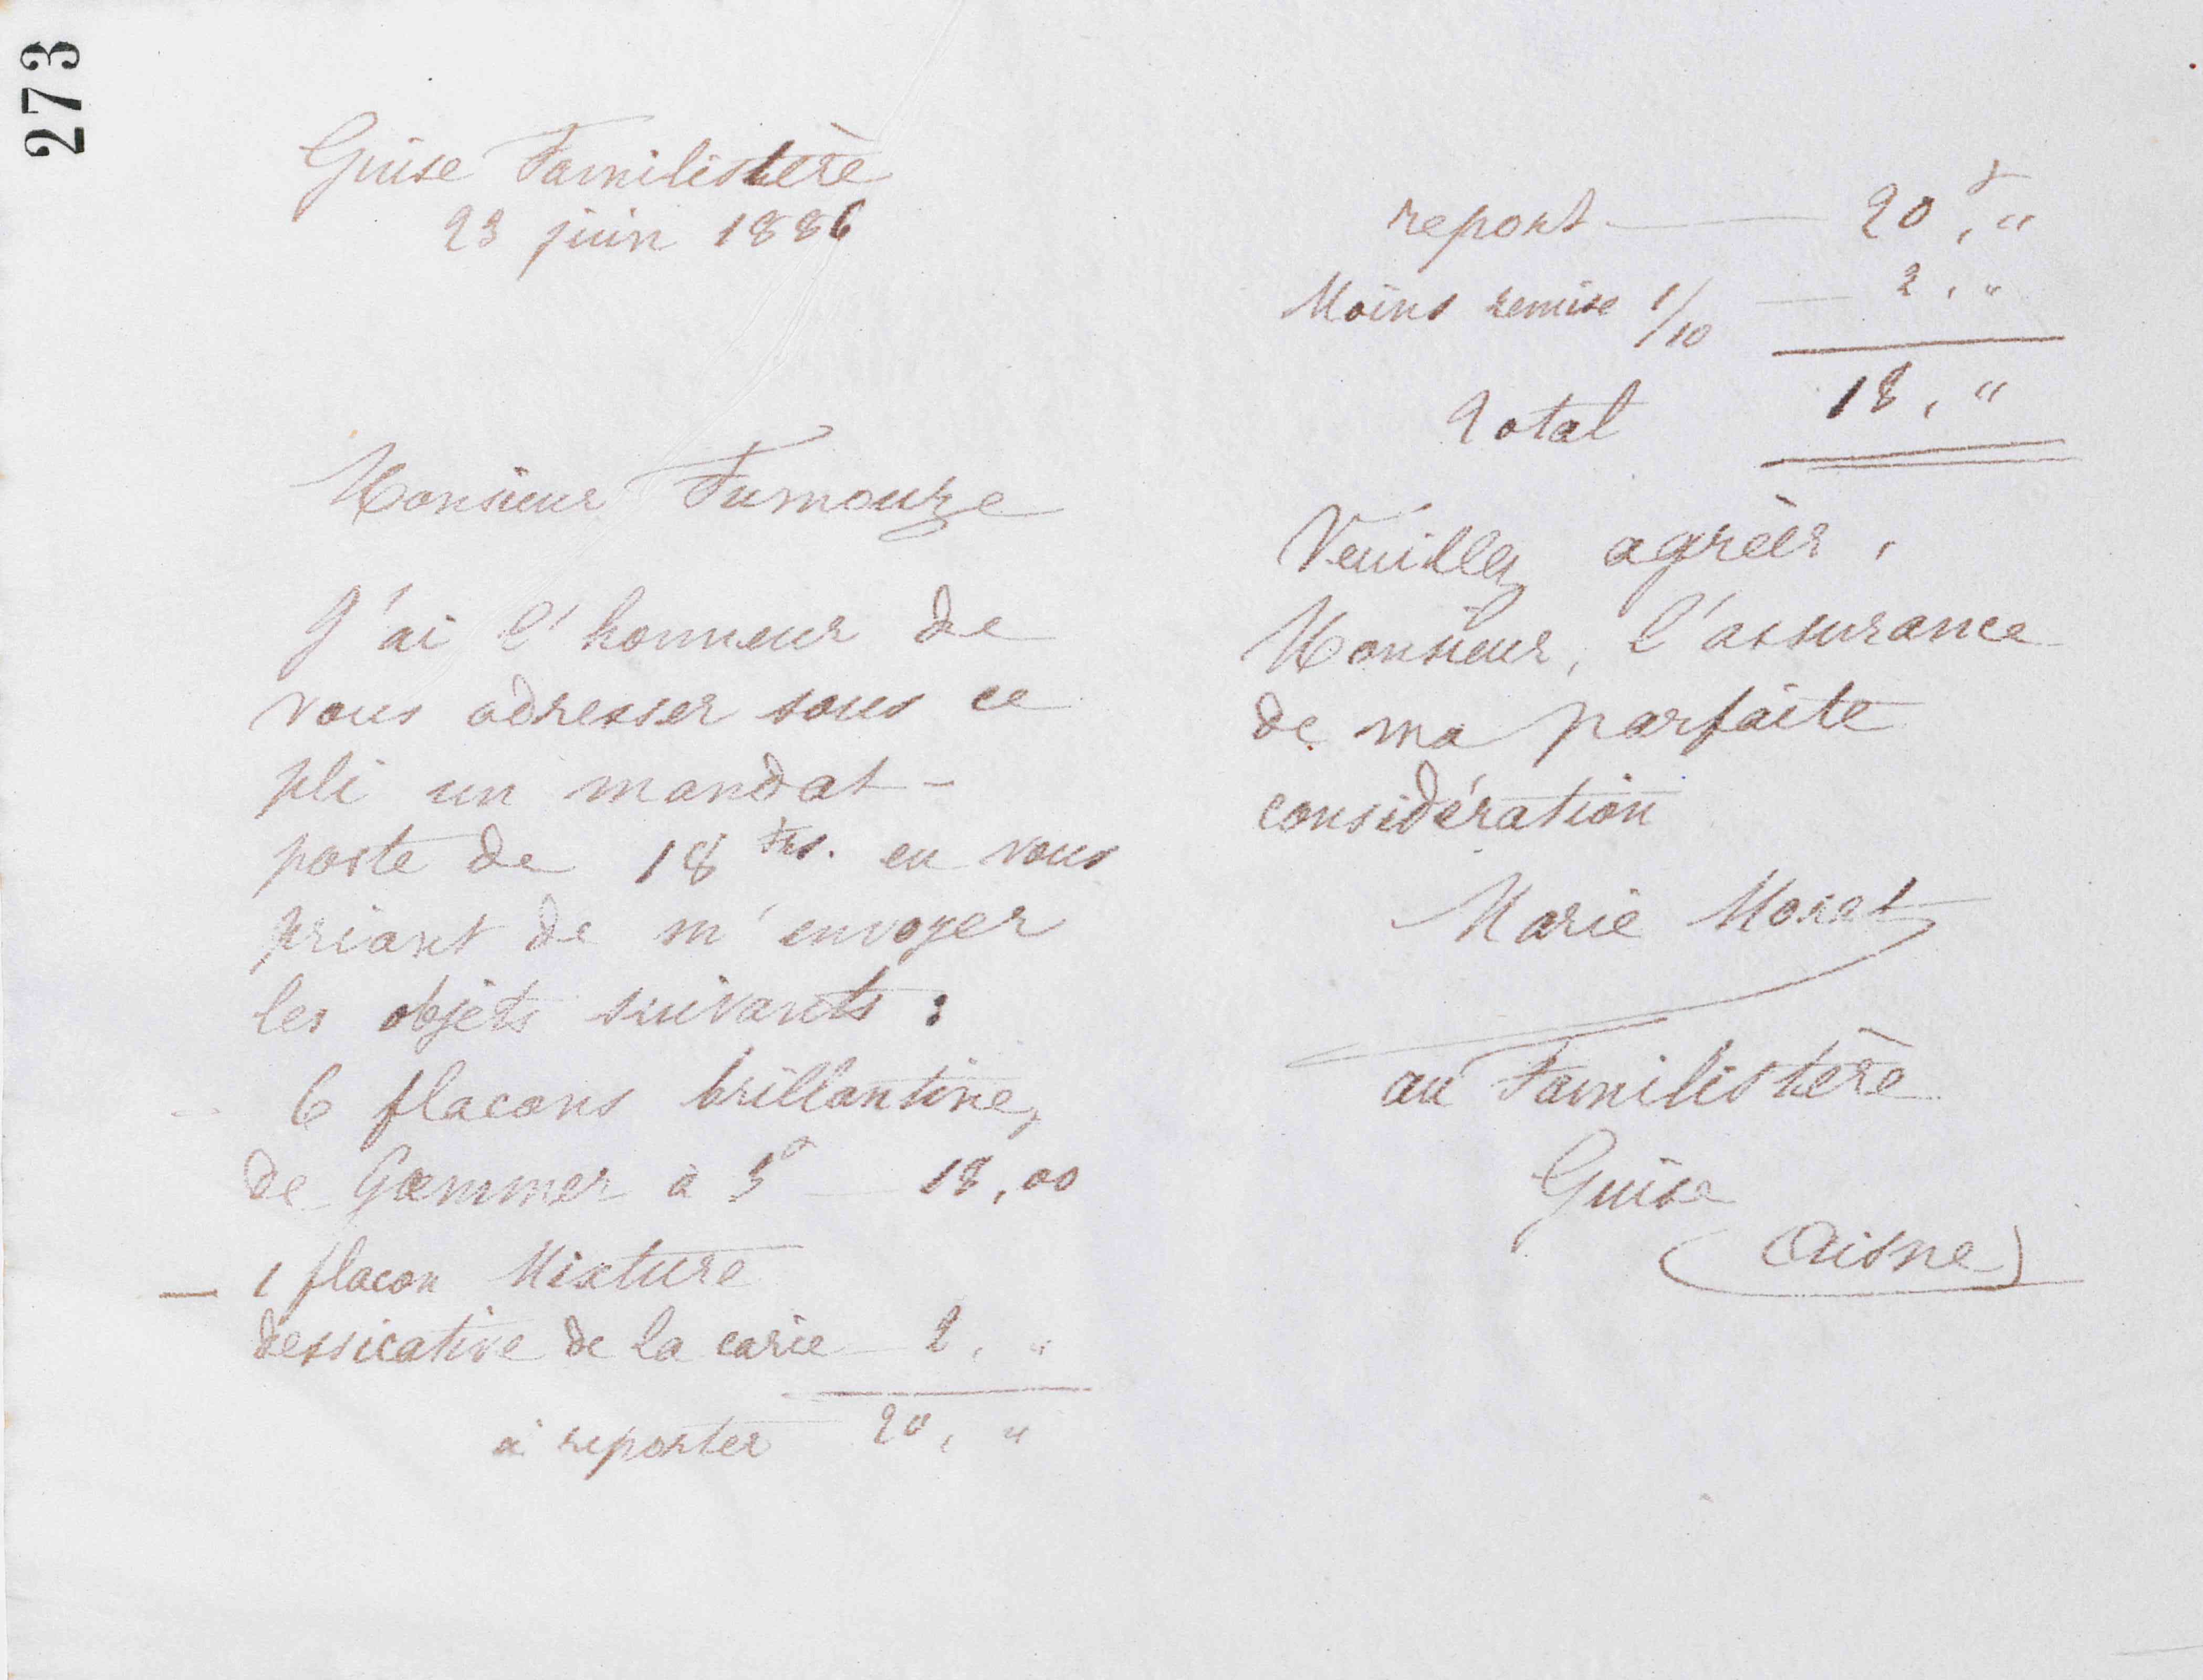 273
Guise Familistère
23 juin 1886
Monsieur Fumouze
J'ai l'honneur de
vous adresser sous ce
pli un mandat-
poste de 18 frs. en vous
priant de m'envoyer
les objets suivants :
6 flacons brillantine,
de Gæmmer à 3f 18,00
1 flacon Mixture
dessicative de la carie 2, "
à reporter 20, "
report 20f, "
Moins remise 1/10 2, "
Total 18, "
Veuillez agréer,
Monsieur, l'assurance
de ma parfaite
considération
Marie Moret
au Familistère
Guise
(Aisne)